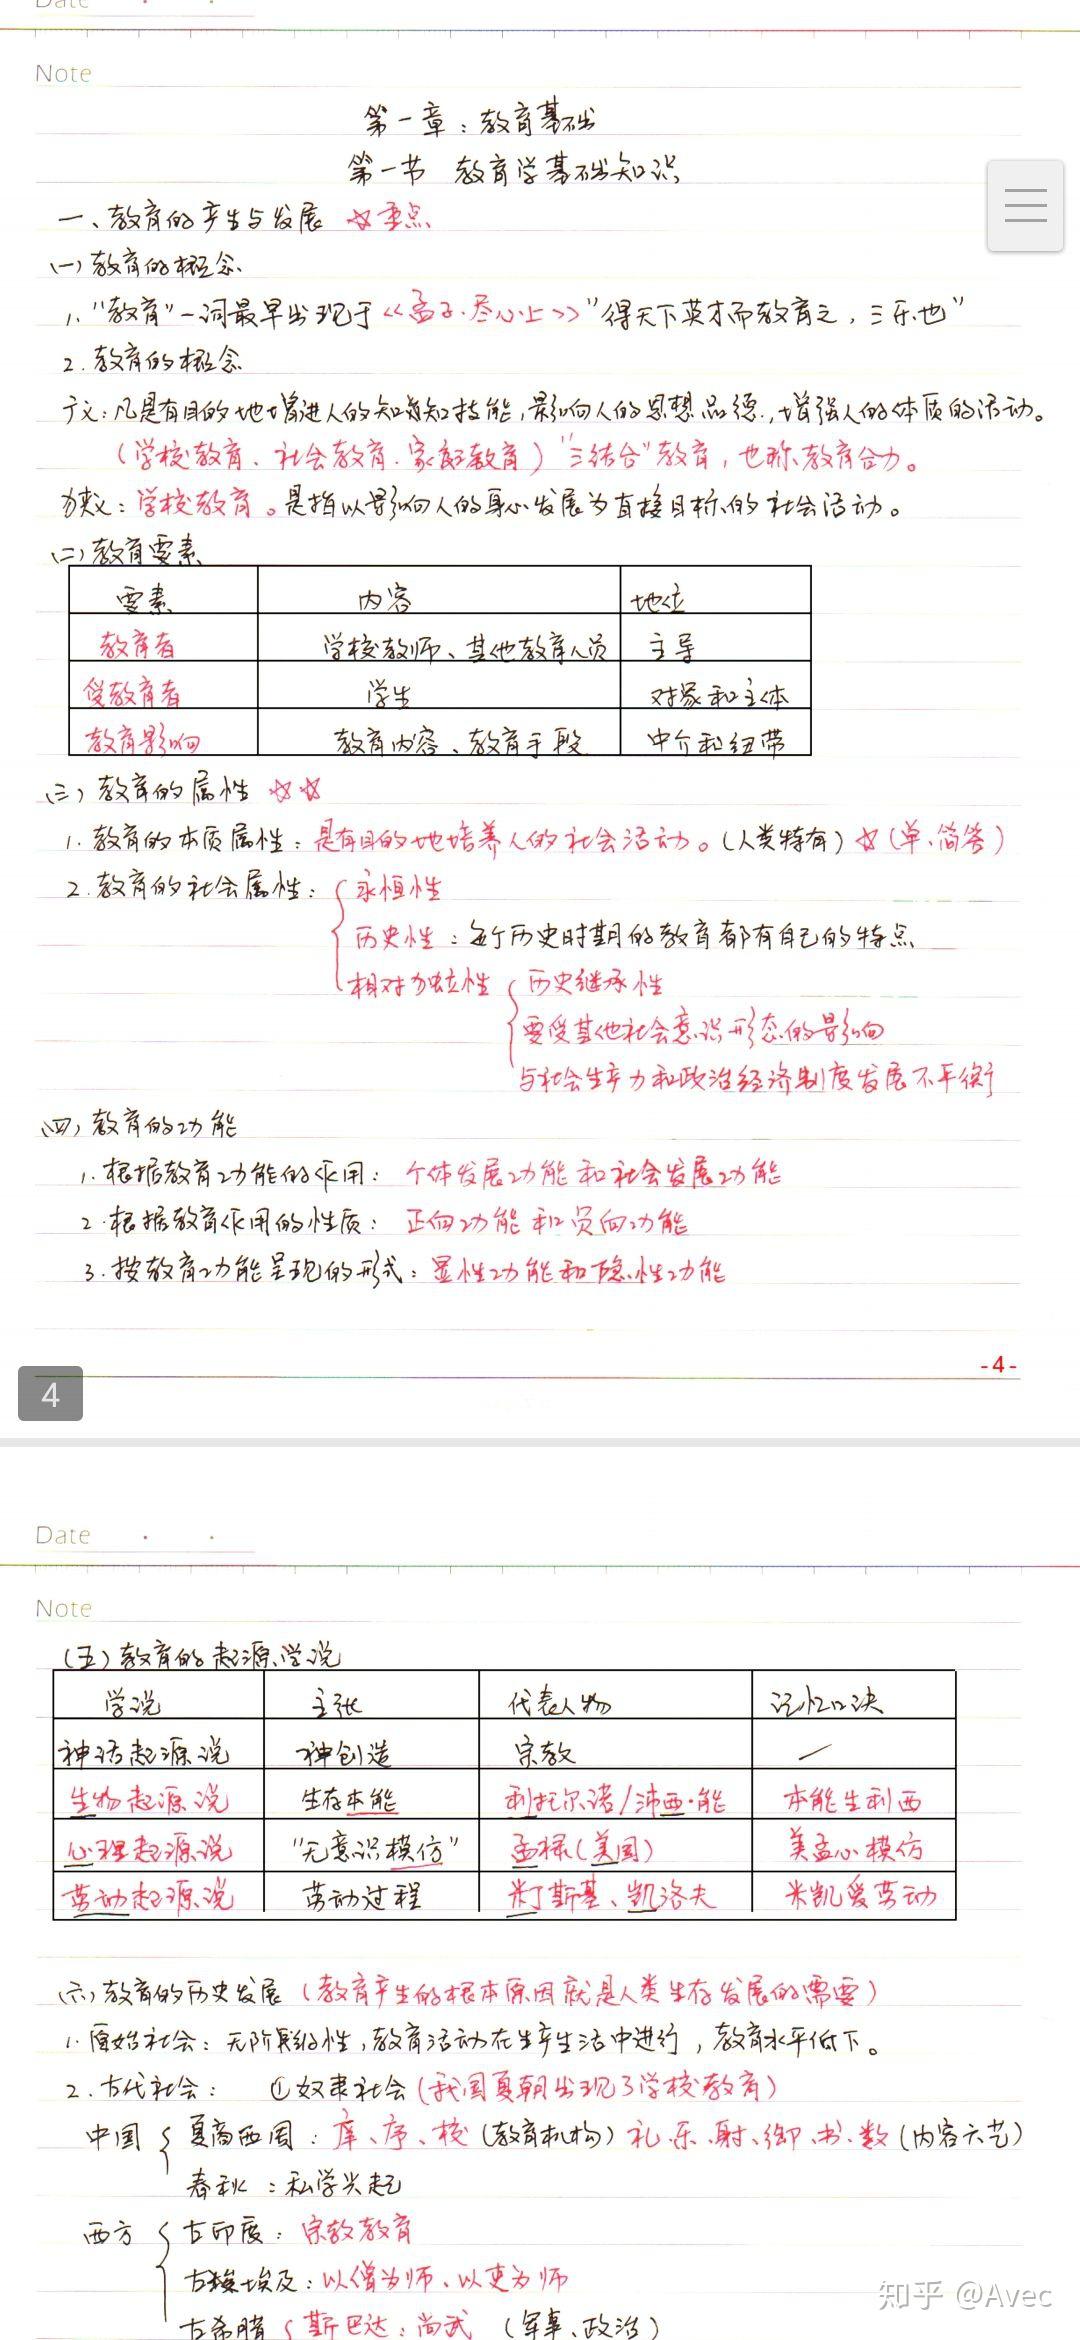 Date
Note
第一章：教育基础
第一节 教育学基础知识
一、教育的产生与发展 ☆重点
(一) 教育的概念
1. "教育"一词最早出现于《孟子·尽心上》"得天下英才而教育之，三乐也"
2. 教育的概念
广义：凡是有目的地增进人的知识和技能，影响人的思想品德，增强人的体质的活动。
(学校教育、社会教育、家庭教育) "三结合"教育，也称教育合力。
狭义：学校教育。是指以影响人的身心发展为直接目标的社会活动。
(二) 教育要素
要素 内容 地位
教育者 学校教师、其他教育人员 主导
受教育者 学生 对象和主体
教育影响 教育内容、教育手段 中介和纽带
(三) 教育的属性 ☆☆
1. 教育的本质属性：是有目的地培养人的社会活动。(人类特有) ☆ (单、简答)
2. 教育的社会属性： 永恒性
历史性：每个历史时期的教育都有自己的特点
相对独立性 历史继承性
要受其他社会意识形态的影响
与社会生产力和政治经济制度发展不平衡
(四) 教育的功能
1. 根据教育功能的作用：个体发展功能和社会发展功能
2. 根据教育作用的性质：正向功能和负向功能
3. 按教育功能呈现的形式：显性功能和隐性功能
-4-
4
Date
Note
(五) 教育的起源学说
学说 主张 代表人物 记忆口决
神话起源说 神创造 宗教 —
生物起源说 生存本能 利托尔诺/沛西·能 本能生利西
心理起源说 "无意识模仿" 孟禄(美国) 美孟心模仿
劳动起源说 劳动过程 米丁斯基、凯洛夫 米凯爱劳动
(六) 教育的历史发展 (教育产生的根本原因就是人类生存发展的需要)
1. 原始社会：无阶级性，教育活动在生产生活中进行，教育水平低下。
2. 古代社会： ①奴隶社会(我国夏朝出现了学校教育)
中国 夏商西周：庠、序、校(教育机构) 礼、乐、射、御、书、数(内容六艺)
春秋：私学兴起
西方 古印度：宗教教育
古埃及：以僧为师、以吏为师
古希腊 斯巴达：尚武 (军事、政治)
知乎 @Avec